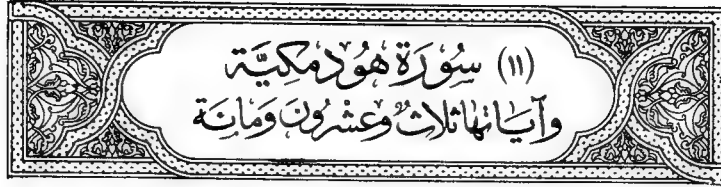 (١١) سُورَة هُود مَكيَّة
وآيَاتهَا ثَلاثٌ وعشْرُونَ وَمائة